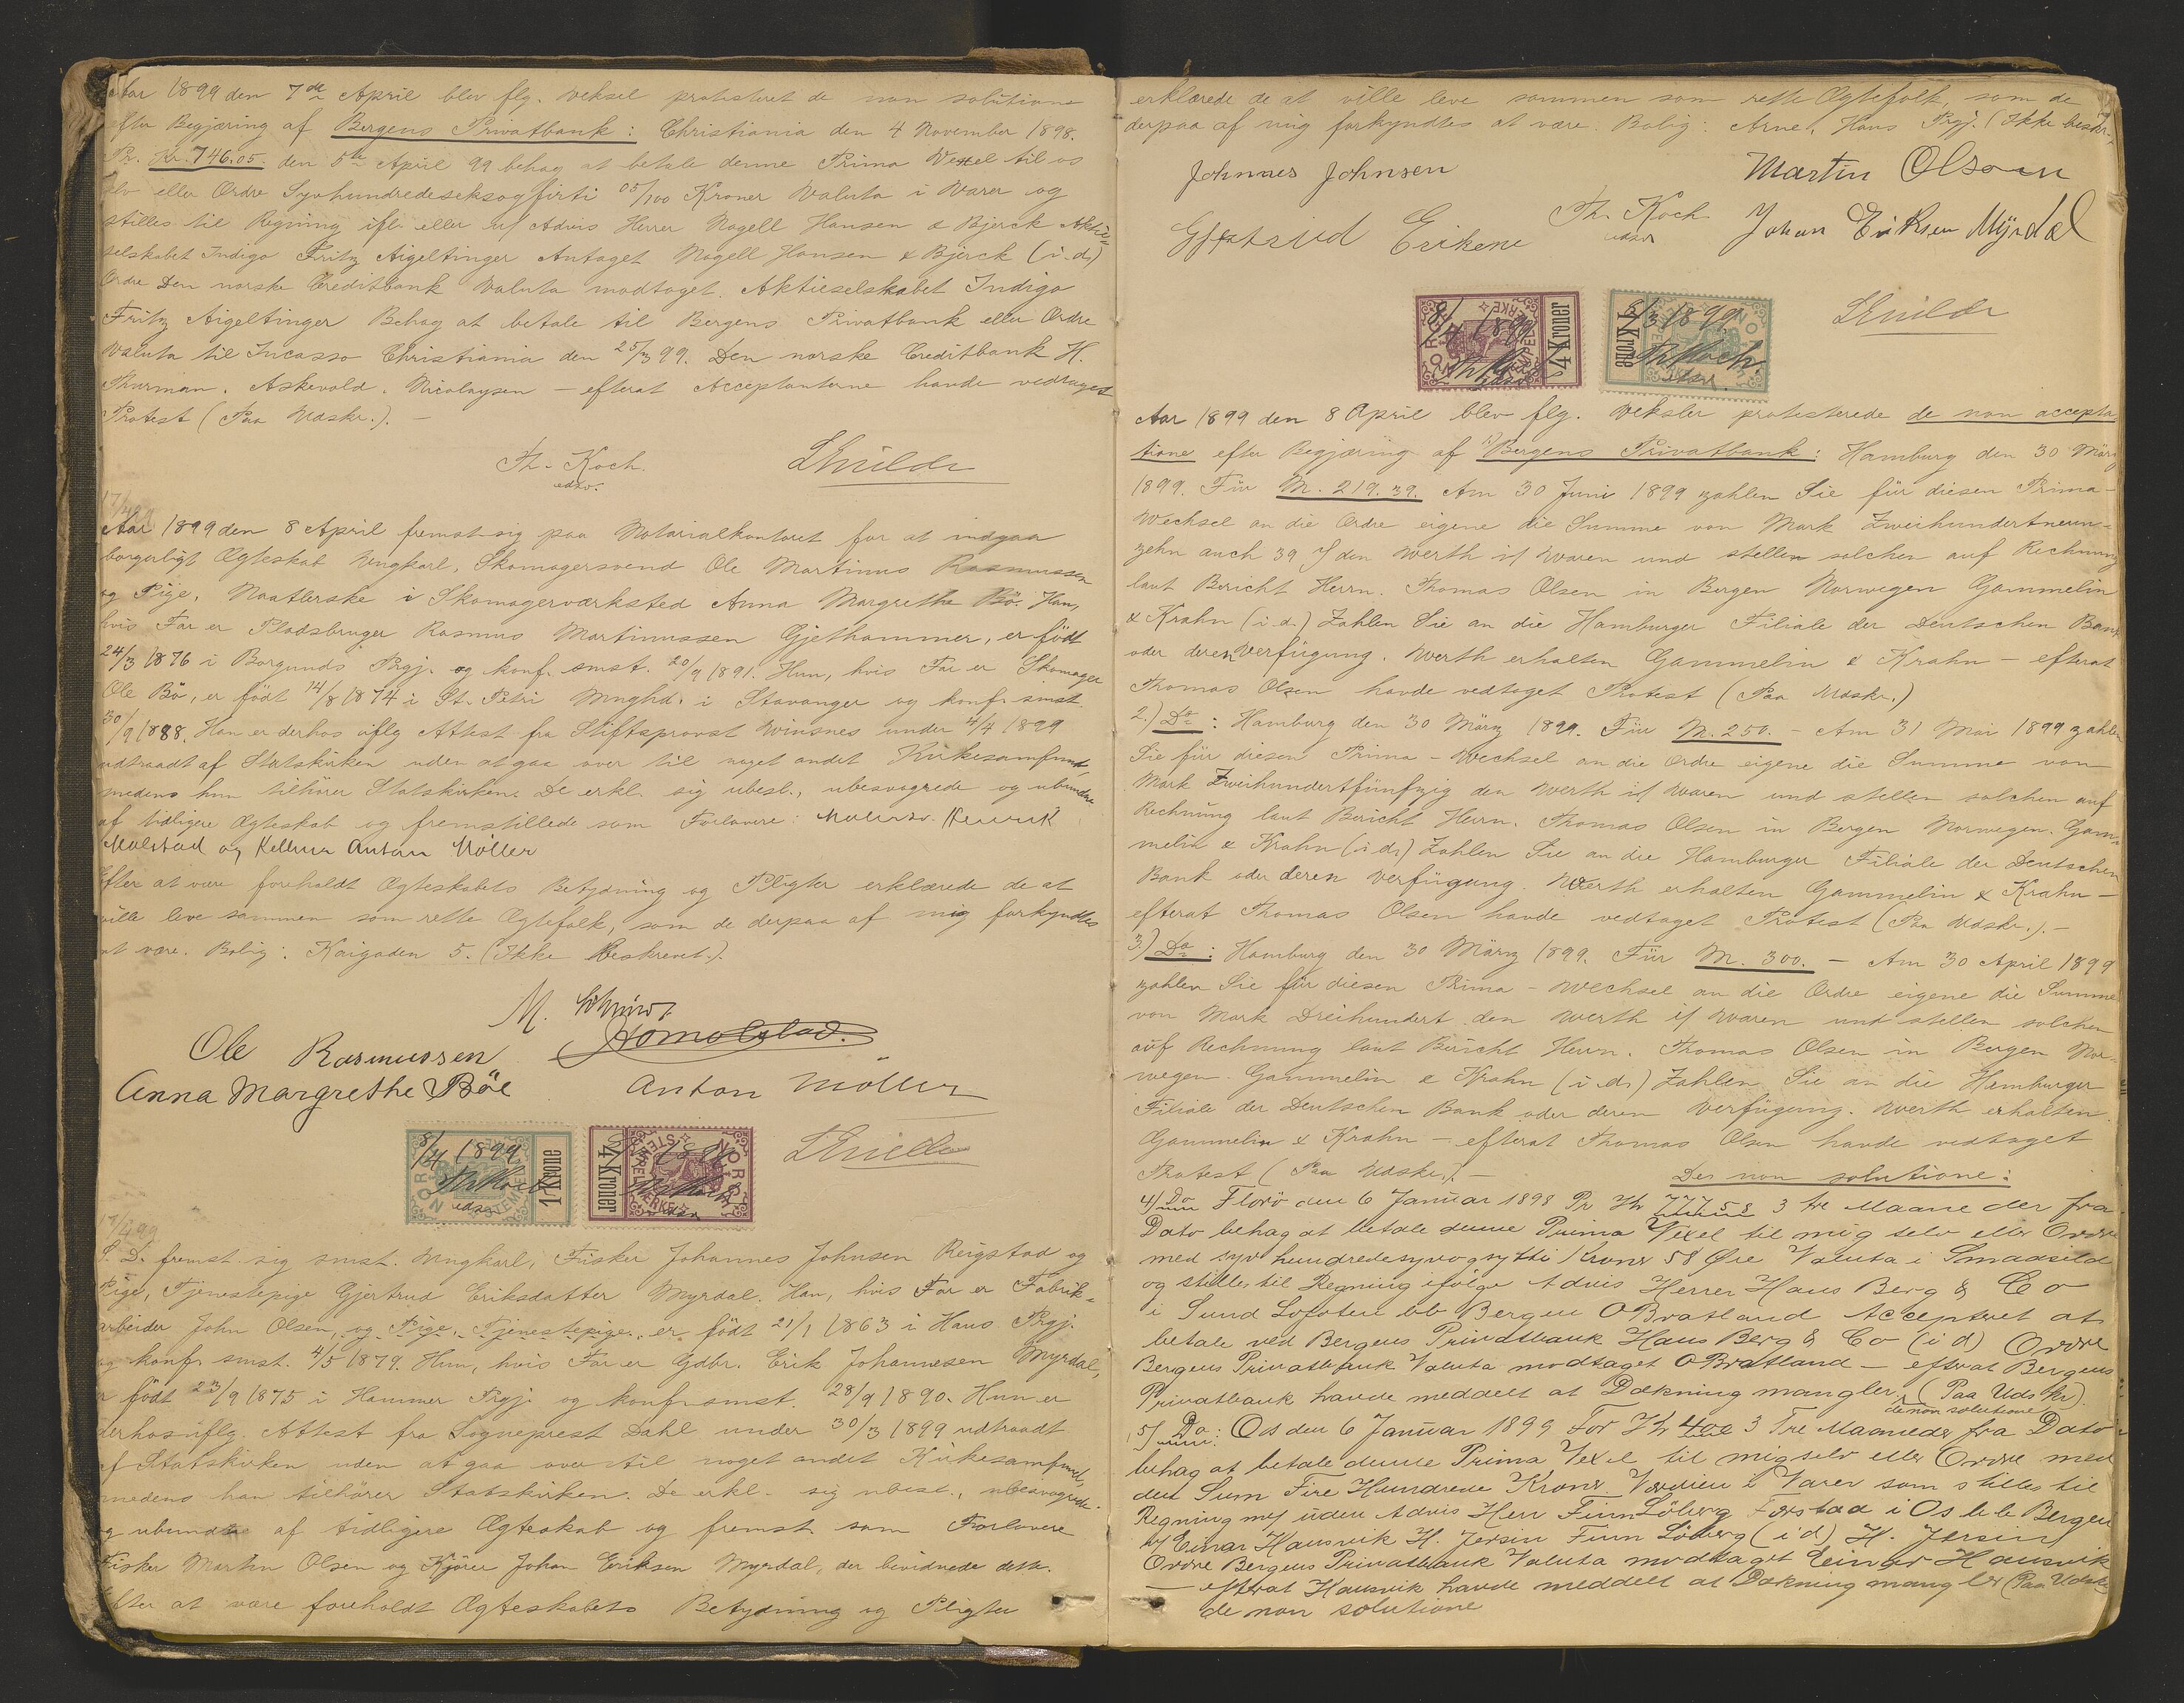 Aar 1899 den 7de April blev flg. Veksel protesteret de non solutione
efter Begjæring af Bergens Privatbank: Christiania den 4 November 1898.
Pr. Kr. 746.05. den 5te April 99 behag at betale denne Prima Vexel til os
selv eller Ordre Syvhundredeseksogfirti 05/100 Kroner Valuta i Varer og
stilles til Regning ifl. eller u/ Advis Herrer Nagell Hansen & Bjerck Aktie-
selskabet Indigo Fritz Aigeltinger Antaget Nagell Hansen & Bjerck (i.d.)
Ordre Den norske Creditbank Valuta modtaget. Aktieselskabet Indigo
Fritz Aigeltinger Behag at betale til Bergens Privatbank eller Ordre
Valuta til Incasso Christiania den 25/3 99. Den norske Creditbank H.
Thurman. Askevold. Nicolaysen — efterat Acceptanterne havde vedtaget
Protest (Paa Udskr.). —
Th. Koch
edsv.
17/4 99
Aar 1899 den 8 April fremst. sig paa Notarialkontoret for at indgaa
borgerligt Ægteskab Ungkarl, Skomagersvend Ole Martinus Rasmussen
og Pige, Naatlerske i Skomagerværksted Anna Margrethe Bö. Han,
hvis Far er Pladsbruger Rasmus Martinussen Gjethammer, er födt
24/3 1876 i Borgunds Prgj. og konf. smst. 20/9 1891. Hun, hvis Far er Skomager
Ole Bö, er födt 14/8 1874 i St. Petri Mnghd. i Stavanger og konf. smst.
30/9 1888. Han er derhos iflg Attest fra Stiftsprovst Winsnes under 4/4 1899
udtraadt af Statskirken uden at gaa over til noget andet Kirkesamfund,
medens hun tilhører Statskirken. De erkl. sig ubesl., ubesvogrede og ubundne
af tidligere Ægteskab og fremstillede som Forlovere:
Molstad og Kellner Anton Möller
Efter at være foreholdt Ægteskabets Betydning og Pligter erklærede de at
ville leve sammen som rette Ægtefolk, som de derpaa af mig forkyndtes
at være. Bolig: Kaigaden 5. (Ikke beskrevet.).
Ole Rasmussen
Anna Margrethe Böe
Anton Möller
8/4 1899
1 Krone
4 Kroner
17/4 99
S. D. fremst. sig smst. Ungkarl, Fisker Johannes Johnsen Reigstad og
Pige, Tjenestepige Gjertrud Eriksdatter Myrdal. Han, hvis Far er Fabrik-
arbeider John Olsen, og Pige, Tjenestepige, er födt 21/1 1863 i Haus Prgj.
og konf. smst. 4/5 1879. Hun, hvis Far er Gdbr. Erik Johannesen Myrdal,
er födt 23/9 1875 i Hammer Prgj. og konf. smst. 28/9 1890. Hun er
derhos iflg. Attest fra Sogneprest Dahl under 30/3 1899 udtraadt
af Statskirken uden at gaa over til noget andet Kirkesamfund,
medens han tilhører Statskirken. De erkl. sig ubesl., ubesvogrede
og ubundne af tidligere Ægteskab og fremst. som Forlovere
Fisker Martin Olsen og Kjører Johan Eriksen Myrdal, der bevidnede dette.
Efter at være foreholdt Ægteskabets Betydning og Pligter
erklærede de at ville leve sammen som rette Ægtefolk, som de
derpaa af mig forkyndtes at være. Bolig: Arne, Haus Prgj. (Ikke beskr.
Johnnes Johnsen Martin Olsen
Gjertrud Th. Koch Johan Eriksen Myrdal
edsv
4 Kroner
1 Krone
Aar 1899 den 8 April blev flg. Veksler protesterede de non accepta-
tione efter Begjæring af 1) Bergens Privatbank: Hamburg den 30 März
1899. Für M. 219.39. Am 30 Juni 1899 zahlen Sie für diesen Prima-
Wechsel an die Ordre eigene die Summe von Mark Zweihundertneun-
zehn auch 39 den Werth i/ Waren und stellen solchen auf Rechnung
laut Bericht Herrn. Thomas Olsen in Bergen Norwegen Gammelin
& Krahn (i.d.) Zahlen Sie an die Hamburger Filiale der Deutschen Bank
oder deren Verfügung. Werth erhalten Gammelin & Krahn — efterat
Thomas Olsen havde vedtaget Protest (Paa Udskr.)
2.) Do: Hamburg den 30 März 1899. Für M. 250. — Am 31 Mai 1899 zahlen
Sie für diesen Prima-Wechsel an die Ordre eigene die Summe von
Mark Zweihundertfünfzig den Werth i/ Waren und stellen solchen auf
Rechnung laut Bericht Herrn. Thomas Olsen in Bergen Norwegen. Gam-
melin & Krahn (i.d.) Zahlen Sie an die Hamburger Filiale der Deutschen
Bank oder deren Verfügung. Werth erhalten Gammelin & Krahn —
efterat Thomas Olsen havde vedtaget Protest (Paa Udskr.). —
3.) Do: Hamburg den 30 März 1899. Für M. 300. — Am 30 April 1899
zahlen Sie für diesen Prima-Wechsel an die Ordre eigene die Summe
von Mark Dreihundert den Werth i/ Waren und stellen solchen
auf Rechnung laut Bericht Herrn. Thomas Olsen in Bergen Nor-
wegen. Gammelin & Krahn (i.d.) Zahlen Sie an die Hamburger
Filiale der Deutschen Bank oder deren Verfügung. Werth erhalten
Gammelin & Krahn — efterat Thomas Olsen havde vedtaget
Protest (Paa Udskr.). — Des non solutione:
4/ Do Florö den 6 Januar 1898 Pr Kr 777.58 3 tre Maaneder fra
Dato behag at betale denne Prima Vexel til mig selv eller Ordre
med syv hundredesyvogsytti Kroner 58 Øre Valuta i Smaasild
og stilles til Regning ifølge Advis Herrer Hans Berg & Co
i Sund Lofoten bb Bergen O Bratland Accepteret at
betale ved Bergens Privatbank Hans Berg & Co (i d) Ordre
Bergens Privatbank Valuta modtaget O Bratland — efterat Bergens
Privatbank havde meddelt at Dækning mangler. (Paa Udskr).
de non solutione
5/ Do: Os den 6 Januar 1899 For Kr 400 3 Tre Maaneder fra Dato
behag at betale denne Prima Vexel til mig selv eller Ordre med
den Sum Fire Hundrede Kroner Værdien i Varer som stilles til
Regning m/ uden Advis Herr Finn Löberg i Os bb Bergen
Einar Hausvik H. Jersin Finn Löberg (i d) H. Jersin
Ordre Bergens Privatbank Valuta modtaget Einar Hausvik
— efterat Hausvik havde meddelt at Dækning mangler (Paa Udskr
de non solutione